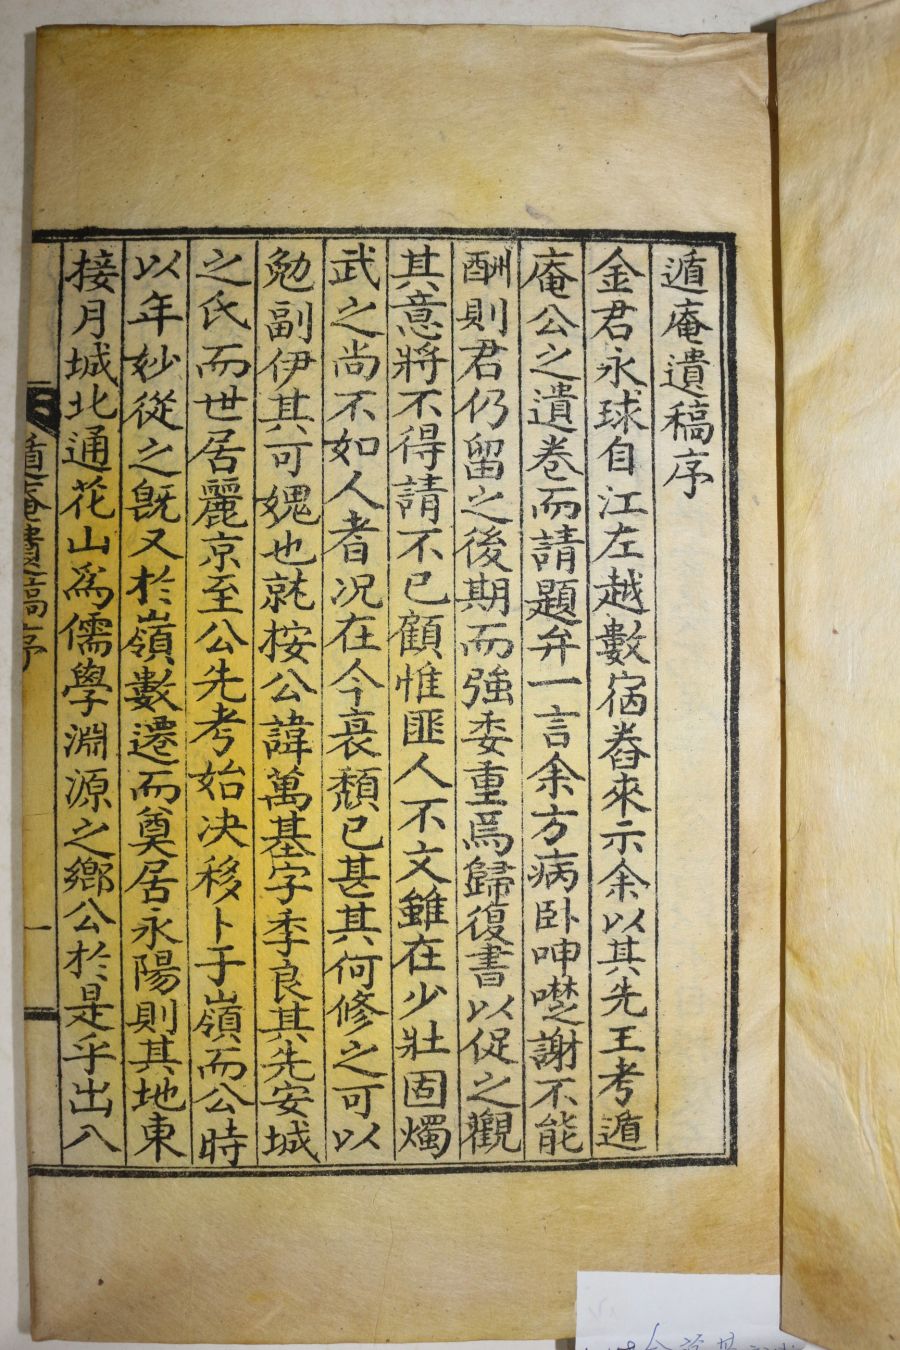 遁庵遺稿序
金君永球自江左越數宿舂來示余以其先王考遁
庵公之遺卷而請題弁一言余方病卧呻囈謝不能
酬則君仍留之後期而強委重焉歸復書以促之觀
其意將不得請不已顧惟匪人不文雖在少壯固燭
武之尚不如人者况在今衰頹已甚其何修之可以
勉副伊其可媿也就桉公諱萬基字季良其先安城
之氏而世居麗京至公先考始决移卜于嶺而公時
以年妙從之旣又於嶺數遷而奠居永陽則其地東
接月城北通花山爲儒學淵源之鄉公於是乎出入
遁庵遺稿序
一